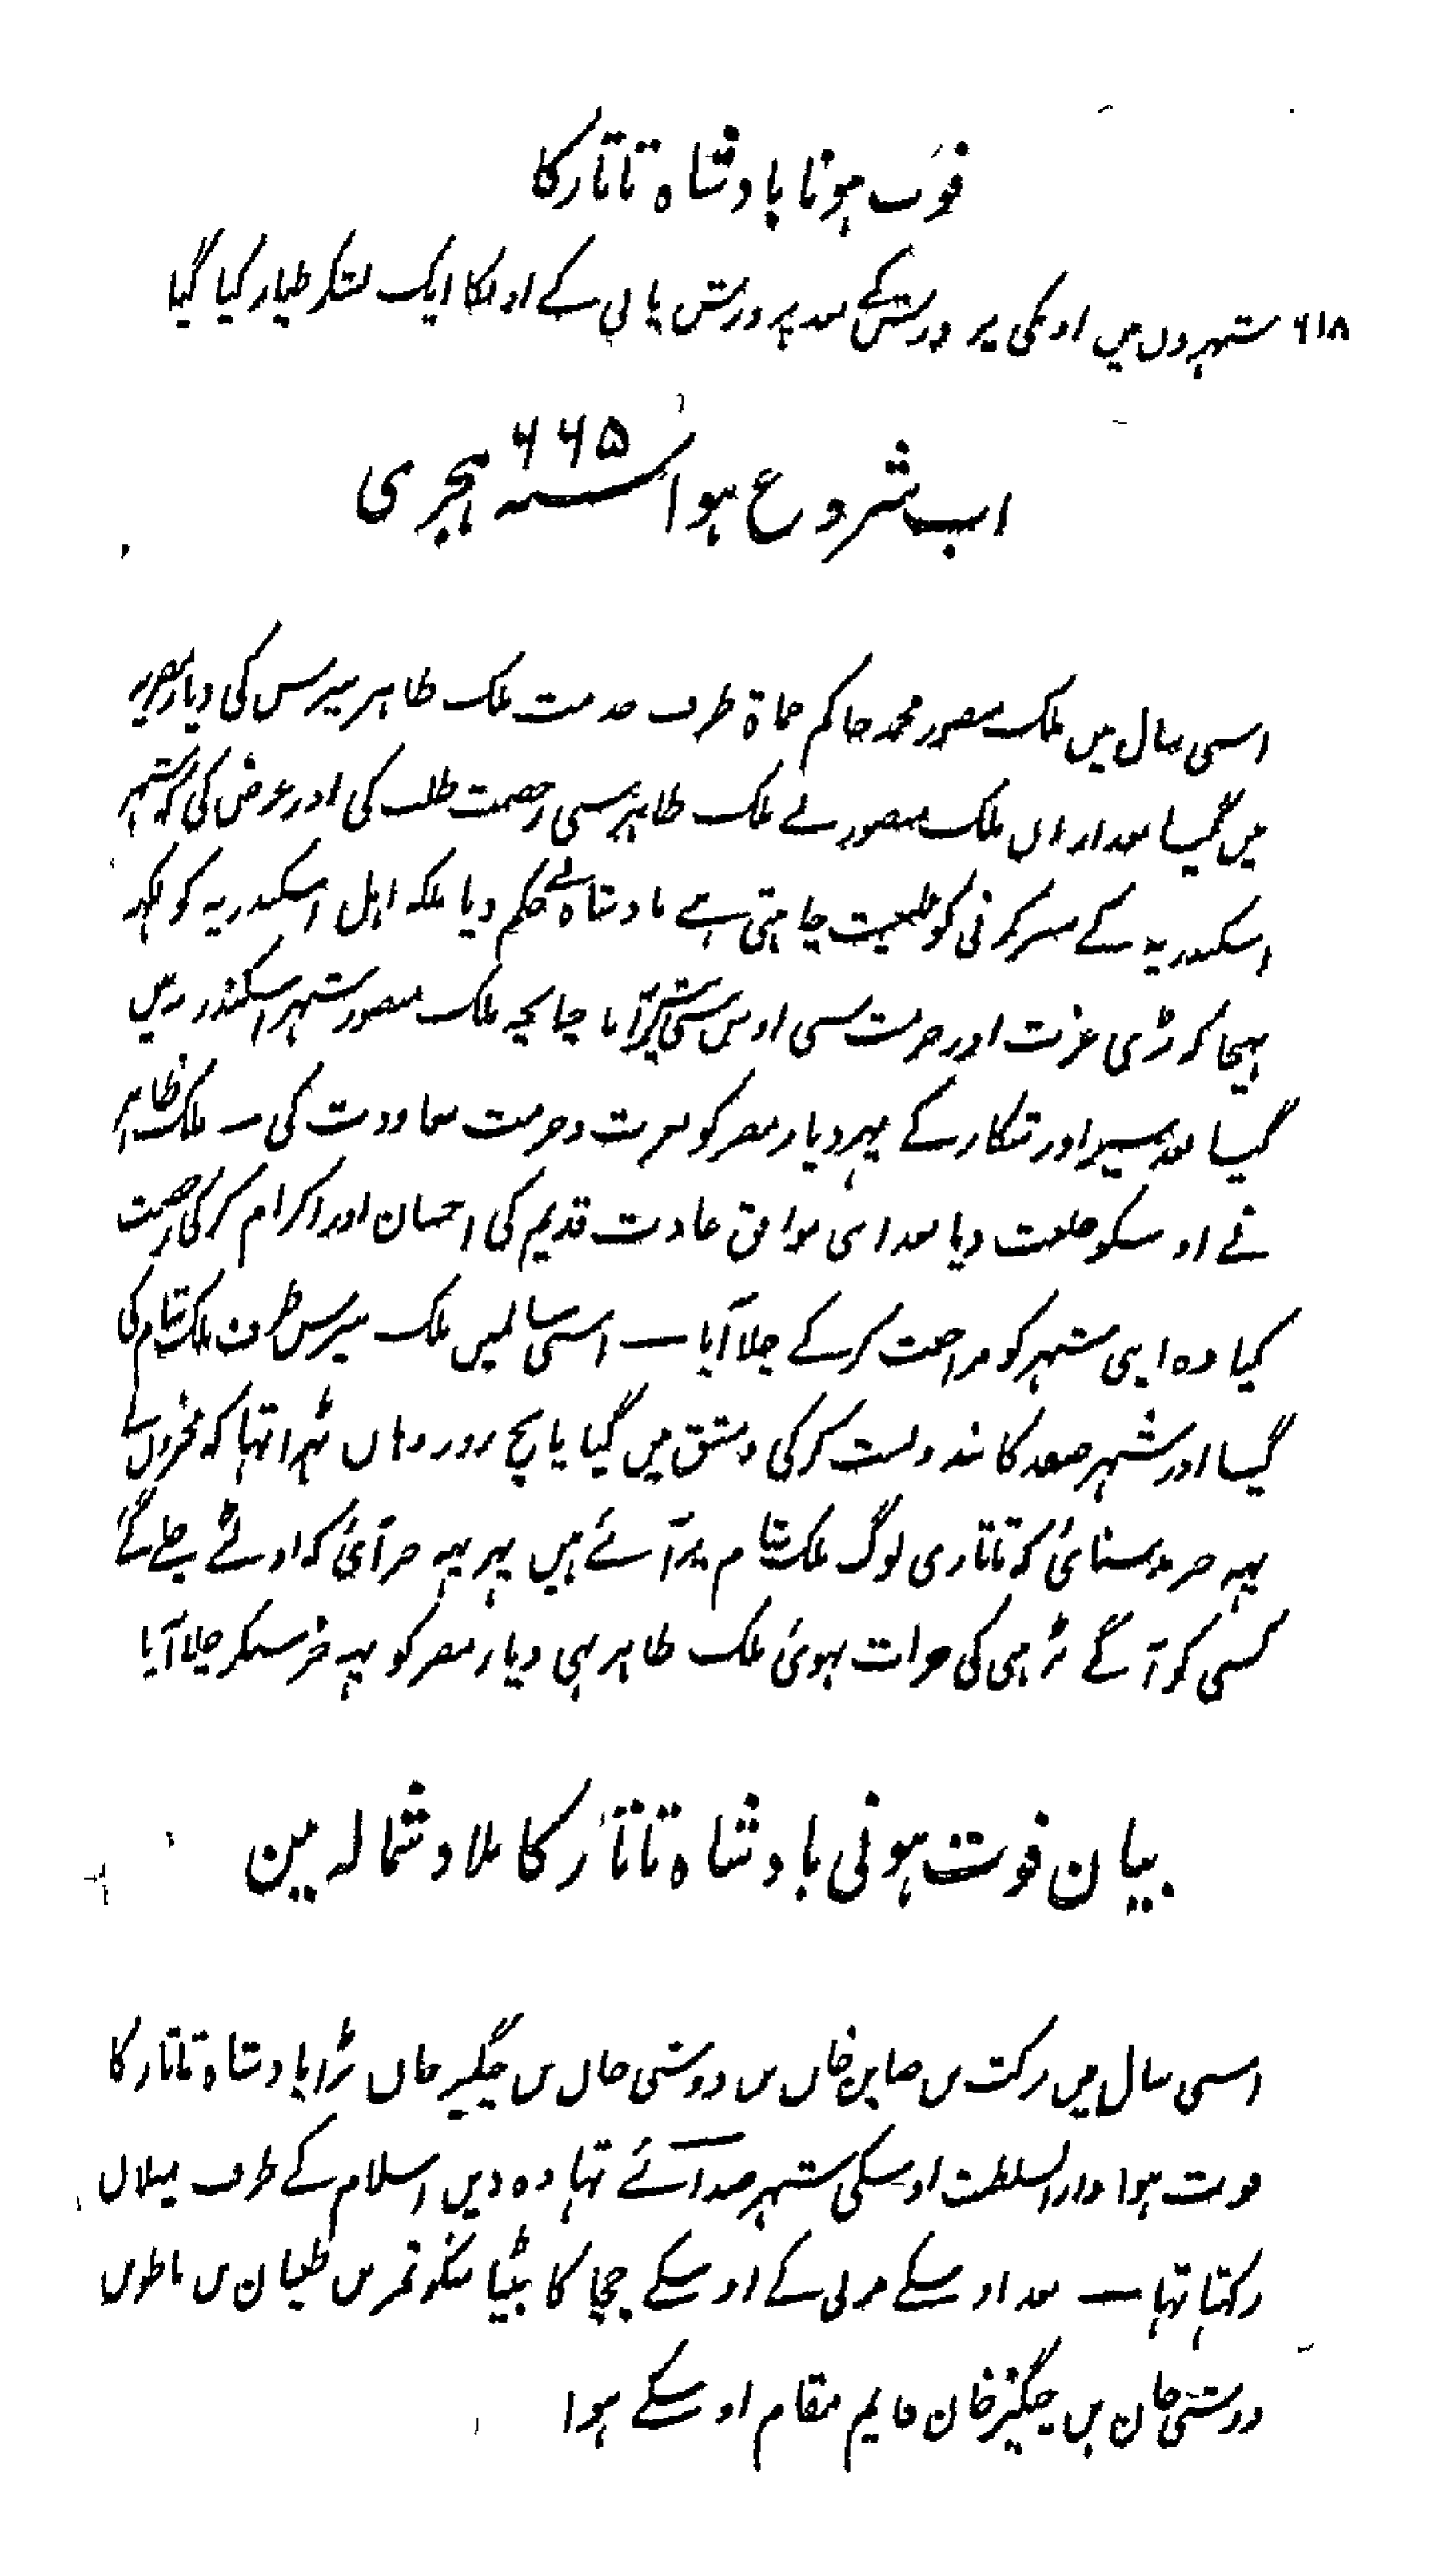 فوت ہونا بادشاہ تاتار کا
۶۱۸ شہروں میں اونکی پرورش کے بعد پرورش پانی کے اونکا ایک لشکر طیار کیا گیا
اب شروع ہوا سنہ ۶۶۵ ہجری
اسی سال میں ملک منصور محمد حاکم حماة طرف خدمت ملک ظاہر بیبرس کی دیار مصریہ
میں گیا بعد ازاں ملک منصور نے ملک ظاہر سی رخصت طلب کی اور عرض کی کہ شہر
اسکندریہ کے سیر کرنی کو طبیعت چاہتی ہے بادشاہ نے حکم دیا بلکہ اہل اسکندریہ کو لکہہ
بہیجا کہ بڑی عزت اور حرمت سی اوس سی پیش آنا چنانچہ ملک منصور شہر اسکندریہ میں
گیا بعد سیر اور شکار کے پہر دیار مصر کو بعزت و حرمت معاودت کی — ملک ظاہر
نے اوسکو خلعت دیا بعد اس موافق عادت قدیم کی احسان اور اکرام کر کی رخصت
کیا وہ اپنی شہر کو مراجعت کر کے چلا آیا — اسی سالمیں ملک بیبرس طرف ملک شام کی
گیا اور شہر صفد کا بند و بست کر کی دمشق میں گیا پانچ روز وہاں ٹہرا تہا کہ مخبروں نے
یہہ خبر سنائی کہ تاتاری لوگ ملک شام پر آئے ہیں پہر یہہ خبر آئی کہ اولٹے چلے گئے
کسی کو آگے بڑہنی کی جرات ہوئی ملک ظاہر بہی دیار مصر کو یہہ خبر سنکر چلا آیا
بیان فوت ہونی بادشاہ تاتار کا بلاد شمالہ مین
اسی سال میں برکت بن صاین خاں بن دوشی خاں بن چنگیز خاں بڑا بادشاہ تاتار کا
فوت ہوا دار السلطنت اوسکی شہر صرآئے تہا وہ دین اسلام کے طرف میلان
رکہتا تہا — بعد اوسکے مرنی کے اوسکے چچا کا بیٹا منکوتمر بن طغان بن باطو بن
دوشی خان بن چنگیز خان قایم مقام اوسکے ہوا